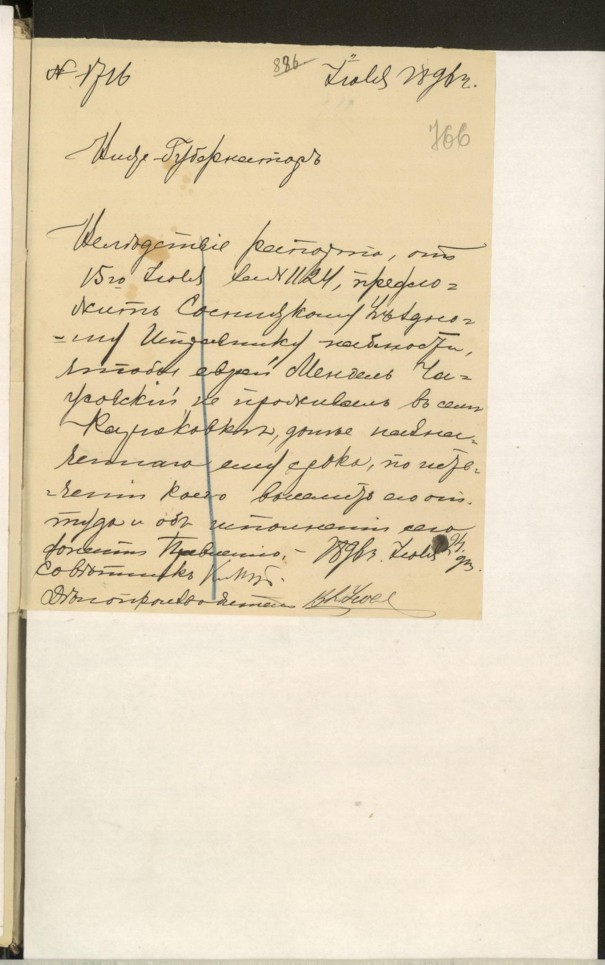 № 1716 886 Июля 1896 г.
766
Вице-Губернаторъ
Вслѣдствіе рапорта, отъ
15го Июля за № 1124, предло=
жить Сосницкому Уѣздно=
=му Исправнику наблюсти,
чтобы еврей Мендель Ча=
усовскій не проживалъ въ селѣ
долѣе назна=
ченнаго ему срока, по исте=
ченіи коего выселить его от=
туда и объ исполненіи сего
донести Правленію, – 1896 г. Июля 24 дня.
Совѣтникъ
Дѣлопроизводитель